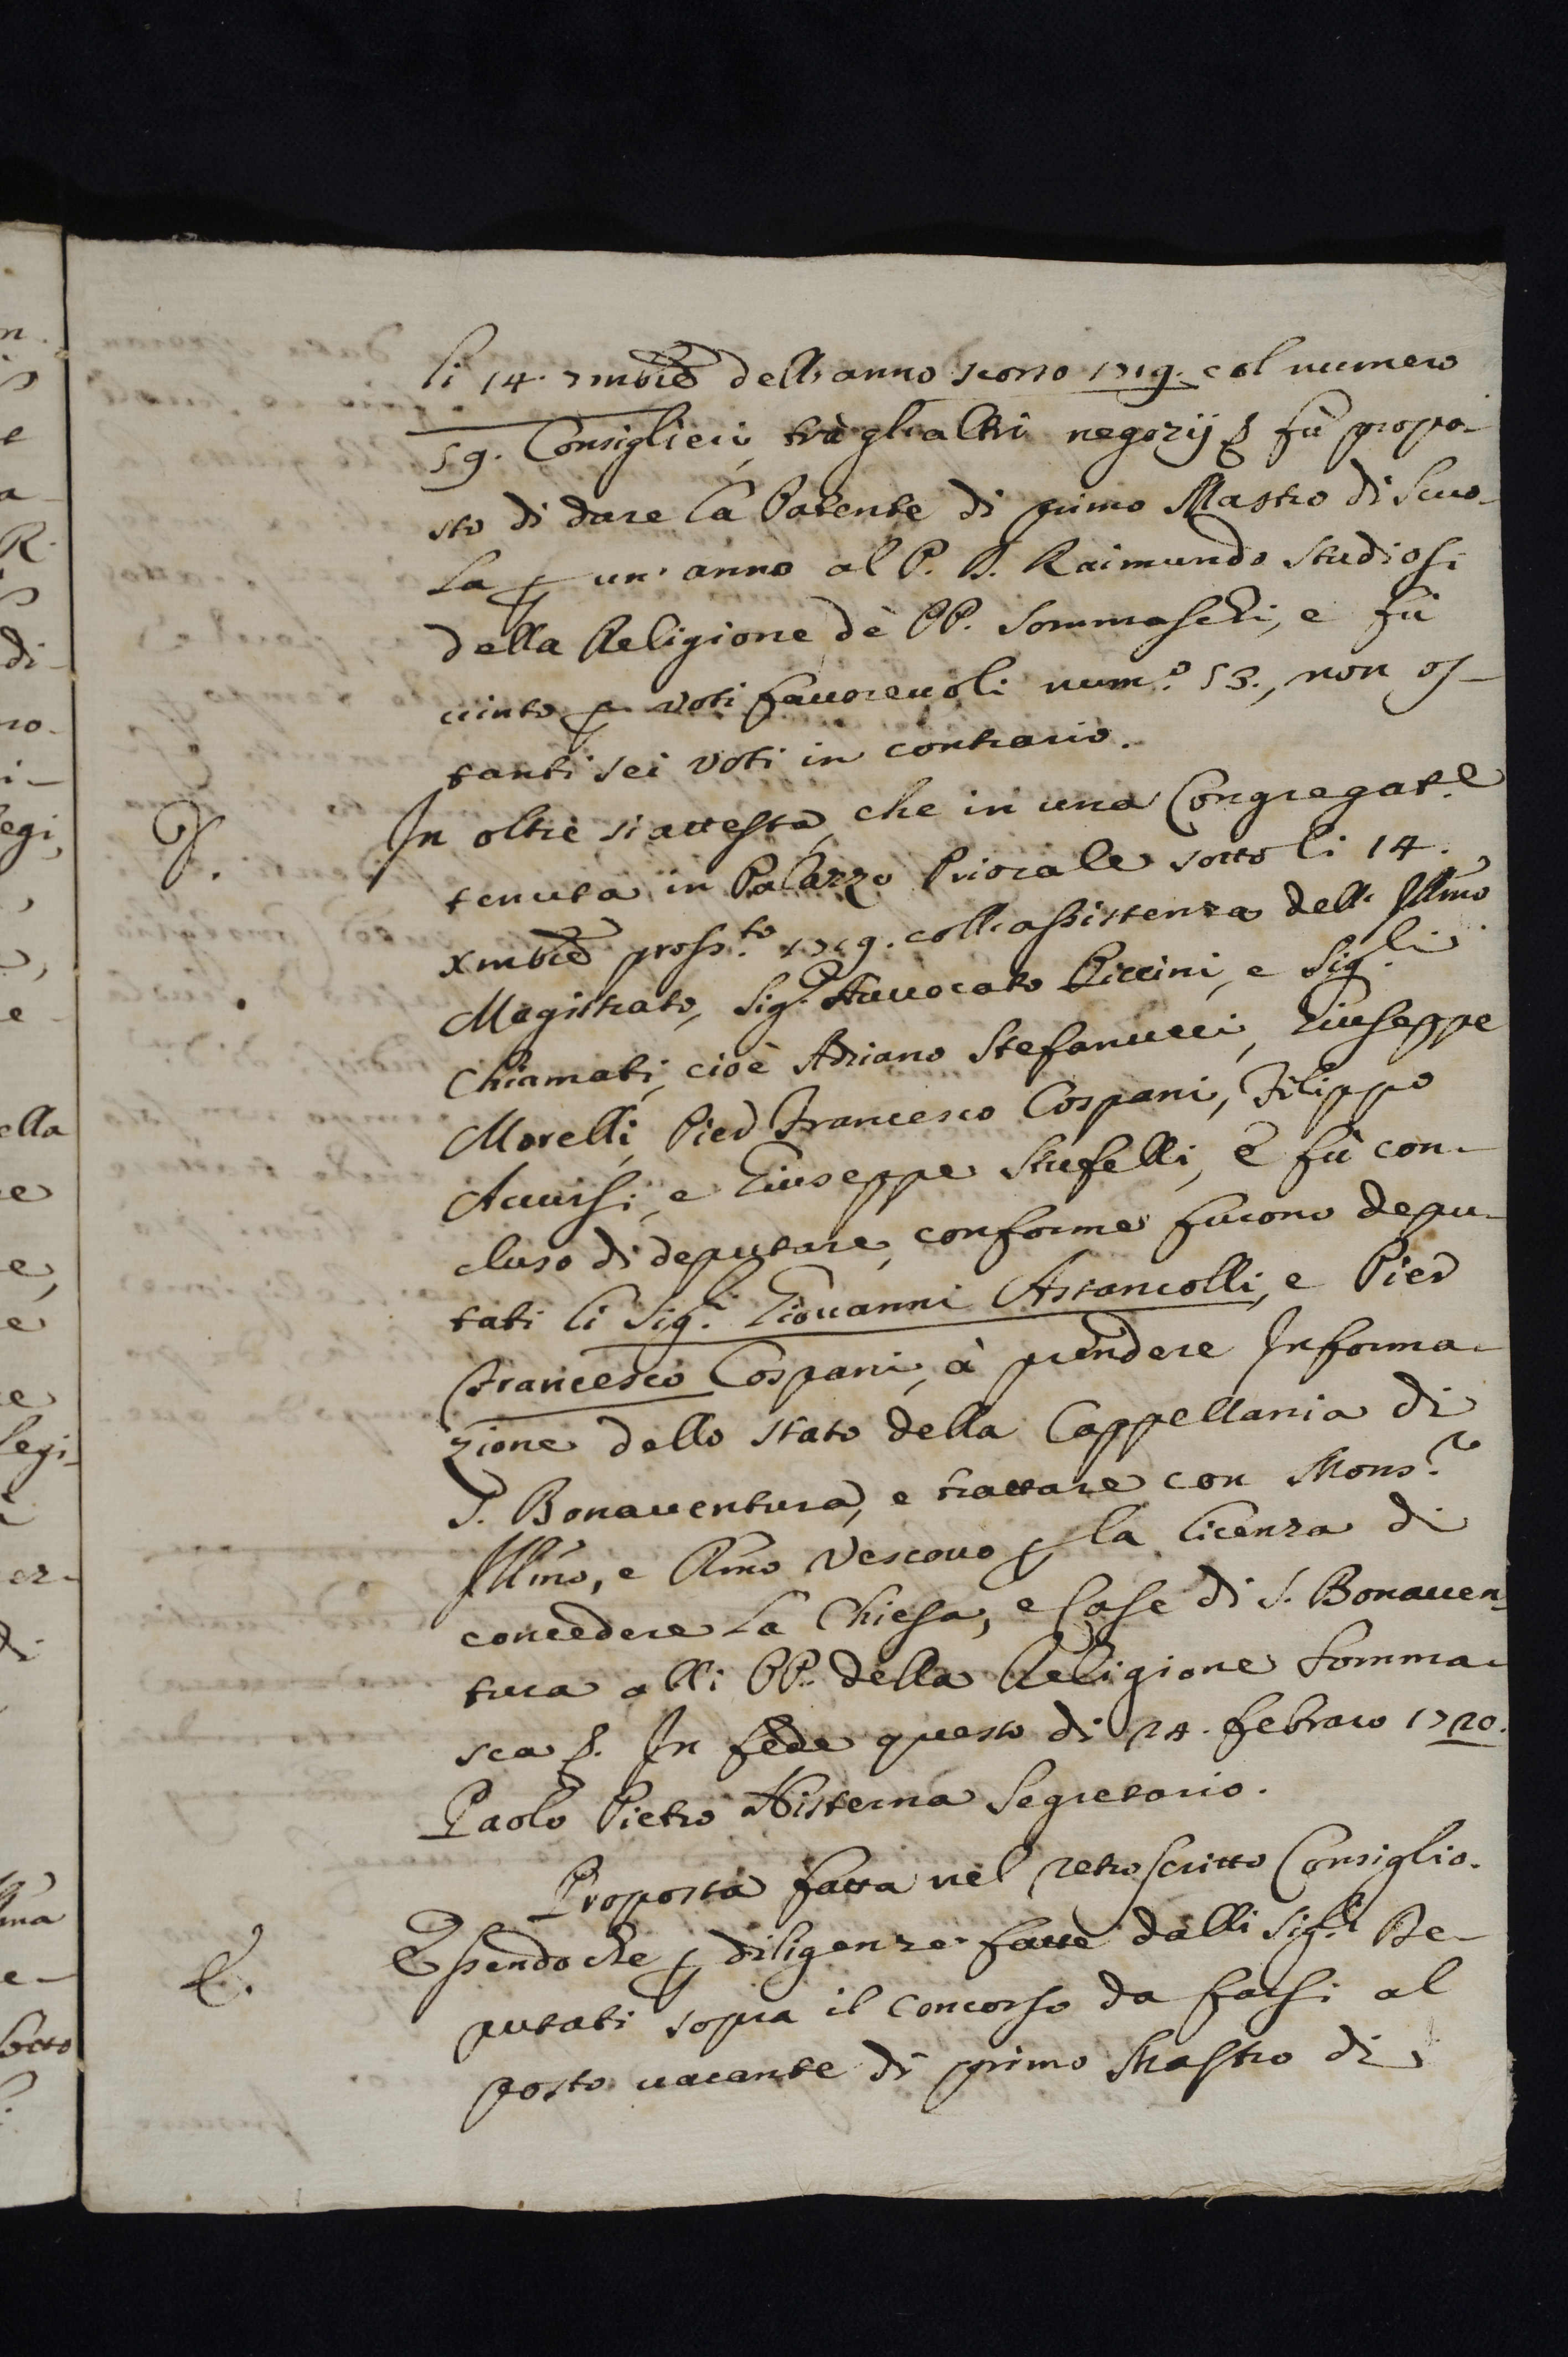 li 14. 7mbre dell'anno scorso 1719. col numero
59. Consiglieri, trà gli altri negozij & fù propo-
sto di dare la Patente di primo Mastro di Scuo-
la p un' anno al P. D. Raimundo Studiosi
della Religione dè PP. Sommaschi, e fù
vinto p voti favorevoli num.o 53., non os-
tanti sei voti in contrario.
In oltre si attesta, che in una Congregat.e
tenuta in Palazzo Priorale sotto li 14.
Xmbre pross.to 1719. coll'assistenza dell' Illmo
Magistrato, Sig.r Avvocato Piccini, e Sig.li
Chiamati, cioè Adriano Stefanucci, Giuseppe
Morelli, Pier Francesco Cospani, Filippo
Avvisi, e Giuseppe Stufelli, e fù con-
cluso di deputare, conforme furono depu-
tati li Sig.ri Giovanni Astancolli, e Pier
Francesco Cospani, à prendere Informa-
zione dello stato della Cappellania di
S. Bonaventura, e trattare con Mons.re
Illmo, e Rmo Vescovo p la licenza di
concedere la Chiesa, e Case di S. Bonaven-
tura alli PP. della Religione Somma-
sca &. In fede questo dì 24. febraro 1720.
Paolo Pietro Histerna Segretario.
Proposta fatta nel retroscritto Consiglio.
E.
Essendo che p diligenze fatte dalli Sig.ri De-
putati sopra il concorso da farsi al
posto vacante di primo Mastro di